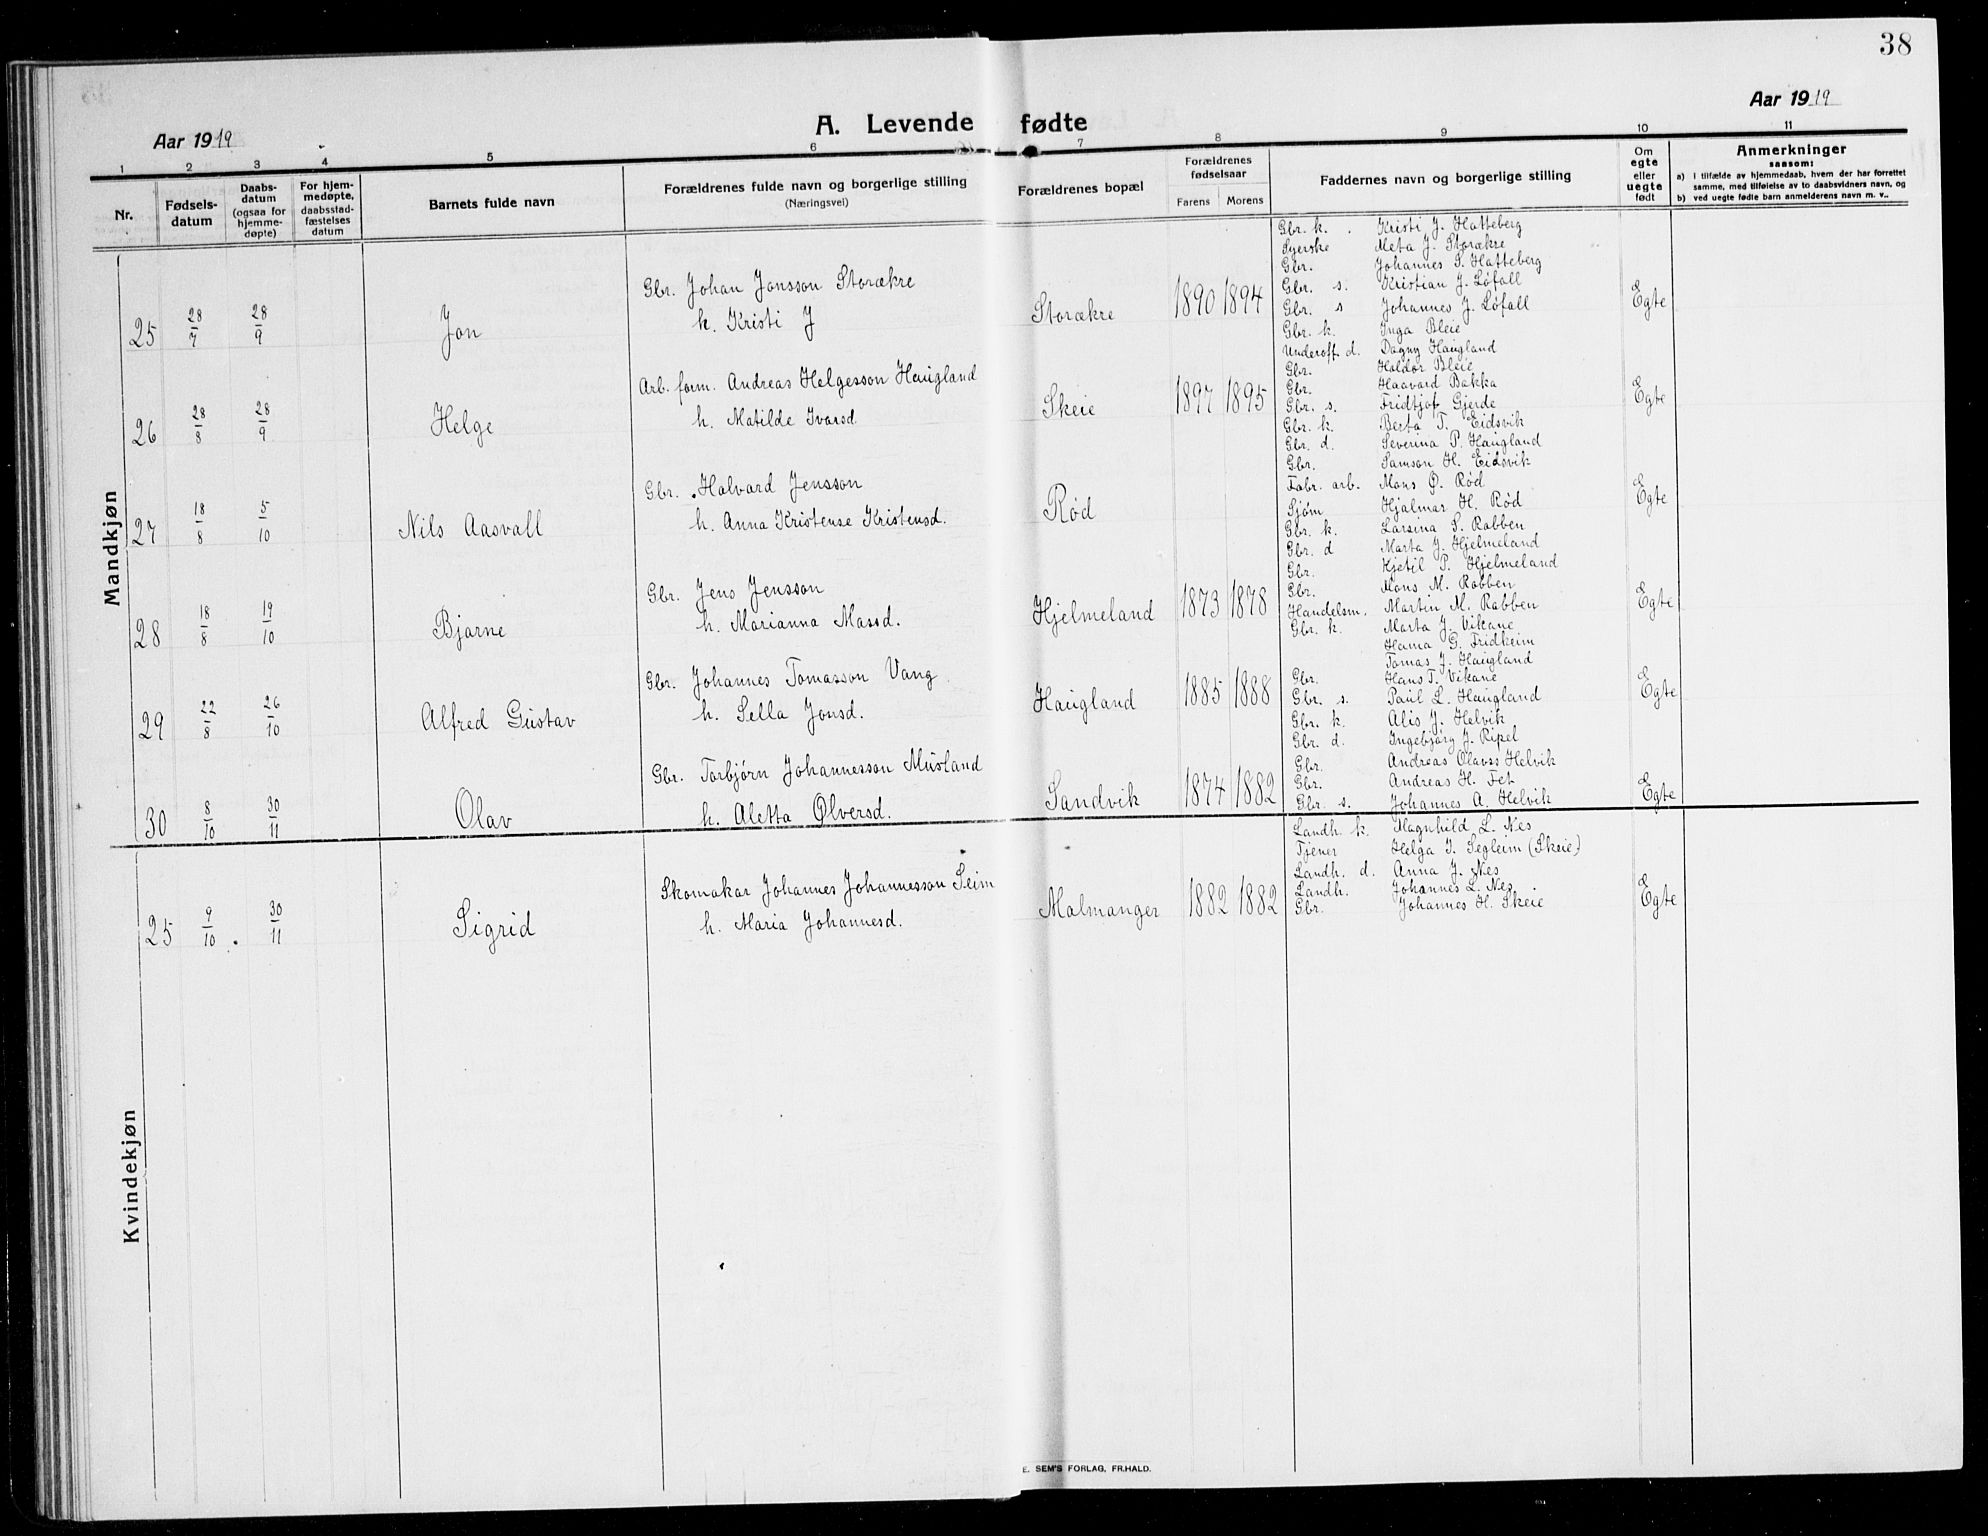 38
Aar 1919
A. Levende fødte
Aar 1919
1 2 3 4 5 6 7 8 9 10 11
Nr.
Fødsels-datum
Daabs-datum (ogsaa for hjemme-døpte)
For hjem-medøpte, daabsstad-fæstelses datum
Barnets fulde navn
Forældrenes fulde navn og borgerlige stilling
(Næringsvei)
Forældrenes bopæl
Forældrenes fødselsaar
Farens Morens
Faddernes navn og borgerlige stilling
Om egte eller uegte født
Anmerkninger
saasom:
a) i tilfælde av hjemmedaab, hvem der har forrettet
samme, med tilføielse av to daabsvidners navn, og
b) ved uegte fødte barn anmelderens navn m. v..
Mandkjøn
25 28/7 28/9 Jon
Gbr. Johan Jonsson Storækre
k. Kristi J
Storækre 1890 1894
Gbr. k. Kristi J. Hatteberg
Syerske Meta J. Storækre
Gbr. Johannes S. Hatteberg
Gbr. s. Kristian J. Løfall
Gbr. s Johannes J. Løfall
Egte
26 28/8 28/9 Helge
Arb. form. Andreas Helgesson Haugland
h. Matilde Ivarsd.
Skeie 1897 1895
Gbr. k. Inga Bleie
Underoff. d. Dagny Haugland
Gbr. Haldor Bleie
Gbr. Haavard Bakka
Gbr. s. Fridtjof Gjerde
Egte
27 18/8 5/10 Nils Aasvall
Gbr. Halvard Jensson
h. Anna Kristense Kristensd.
Rød
Gbr. k. Berta T. Eidsvik
Gbr. d. Severina P. Haugland
Gbr. Samson H. Eidsvik
Fabr. arb. Mons Ø. Rød
Sjøm Hjalmar H. Rød
Egte
28 18/8 19/10 Bjarne
Gbr. Jens Jensson
h. Marianna Massd.
Hjelmeland 1873 1878
Gbr. k. Larsina S. Rabben
Gbr. d Marta J. Hjelmeland
Gbr. Kjetil P. Hjelmeland
Gbr. Mons M. Rabben
Handelsm. Martin M. Rabben
Egte
29 22/8 26/10 Alfred Gustav
Gbr. Johannes Tomasson Vang
h. Sella Jonsd.
Haugland 1885 1888
Gbr. k. Marta J. Vikane
Hama G. Fridheim
Tomas J. Haugland
Gbr. Hans T. Vikane
Gbr. s. Paul L. Haugland
Egte
30 8/10 30/11 Olav
Gbr. Torbjørn Johannesson Musland
h. Aletta Ølversd.
Sandvik 1874 1882
Gbr. k. Alis J. Helvik
Gbr. d. Ingebjørg J. Ripel
Gbr. Andreas Olavss Helvik
Gbr. Andreas H. Fet
Gbr. s. Johannes A. Helvik
Egte
Kvindekjøn
25 9/10 30/11 Sigrid
Skomakar Johannes Johannesson Seim
h. Maria Johannesd.
Malmanger 1882 1882
Landh. k. Magnhild L. Nes
Tjener Helga I. Segleim (Skeie)
Landh. d. Anna J. Nes
Landh. Johannes L. Nes
Gbr. Johannes H. Skeie
Egte
E. SEM'S FORLAG, FR.HALD.